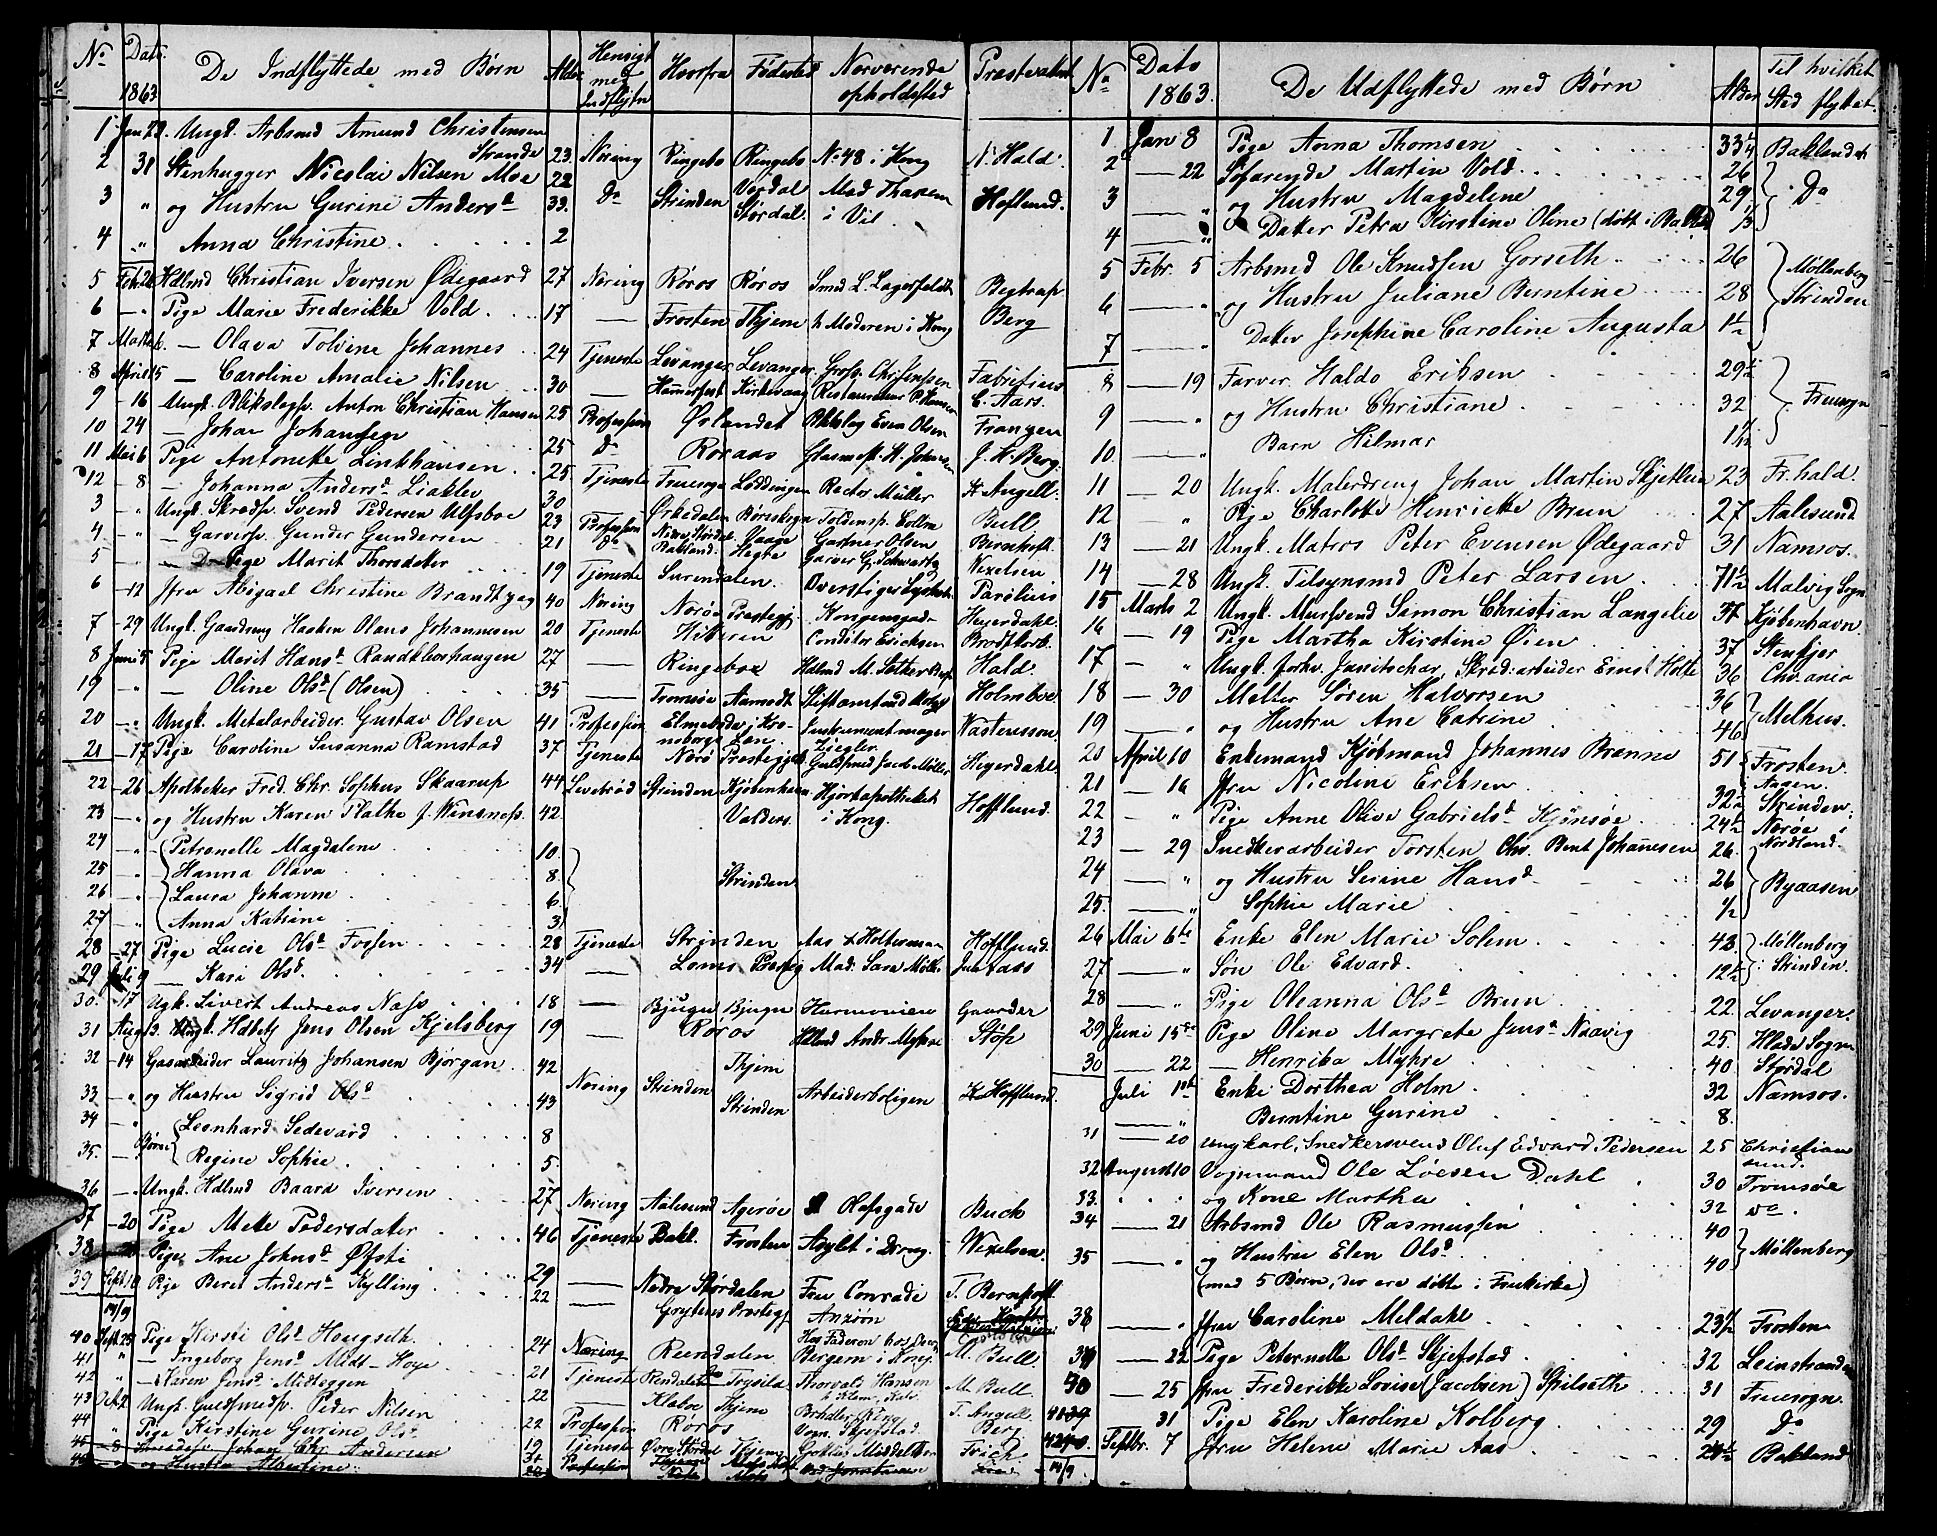 No Dato 1863 De Indflyttede med Børn Alder Hensigt med Indflytn Hvorfra Fødested Nærværende opholdsted Præstevaln
1 Jan 29. Ungk. Arbsmd Amund Christensen Strande 23. Næring Ringebo Ringebo No 48 i Kong N. Hald.
2 31 Stenhugger Nicolai Nilsen Moe 22 Do Strinden Værdal Mad Tharem i Vil. Hoflund.
3 " og Hustru Gurine Andersd 33. Størdal
4 " Anna Christine 2
5 Feb 26 Hdlmd Christian Iversen Ødegaard 27 Næring Røros Røros Smed L. Lagerfeldt Begtrup
6 — " Pige Marie Frederikke Vold 17 — Frosten Thjem h Moderen i Kong Berg
7 Marts 6. — Olava Tolvine Johannes 24 Tjeneste Levanger Levanger Gros. Christensen Fabritius
8 April 15 — Caroline Amalie Nilsen 30 — Hammerfest Restaurateur P. Hansen C. Aars.
9 - 16 Ungk. Bliksلagsv. Anton Christian Hansen 25 Profession Ørlandet Blikslag Even Olsen Frangen
10 24 — Johan Johansen 25 Do Roraas Glasmest. H. Johnsen J. H. Berg.
11 Mai 6 Pige Antonette Linkhausen 25 Tjeneste Fruesogn Løddingen Rector Müller K Angell.
12 - 8 — Johanna Andersd Liaklev 30
3 - " Ungk. Skrædsv. Svend Pedersen Ulfsboe 23 Profession Ørkedalen Børseskogn Toldinsp. Collin Bull
4 - " — Garversv. Gunder Gundersen 21 Do Nedre Størdal Gartner Olsen Bernhoft.
5 - " Pige Marit Thorsdatter 19 Tjeneste Surendalen. Garver G. Schwartz Wexelsen
6 - 12 Jfru Abigael Christine Brandtzæg 40 Næring Nærøe Prestegj. Kongensgade Parelius
7 - 29 Ungk. Gaardsdreng Haaken Olaus Johannesen 20 Tjeneste Hitteren Conditor Ericksen Brodtkorb.
8 Juni 5 Pige Marit Hansd Randkleshaugen 27 — Ringeboe Hdlmd M. Hald.
19 - " — Oline Olsd (Olsen) 35 — Tromsøe Aamodt Stiftamtmd Holmboe
20 - " Ungk. Metalarbeider Gustav Olsen 41 Profession Elmeboda i Kronobergs Len. Instrumentmager Ziegler Wastersson.
21 - 17 Pige Caroline Susanna Ramstad 37 Tjeneste Nærø Prestegjeld Guldsmed Jacob Møller Hegerdahl.
22 - 26 Apotheker Fred. Chr. Sophus Skaarup 44 Levebrød Strinden Kjøbenhavn Hjorteapotheket i Kong. Hofflund.
23 - " og Hustru Karen Plathe f. Winsnes. 42. Valders.
24 - " Petronelle Magdalene 10. Strinden
25 - " Hanna Olava 8.
26 - " Laura Johanne 6.
27 - " Anna Katrine 3
28 - 27 Pige Lucie Olsd Fossen 28 Tjeneste Strinden Aas & Holtermann Hofflund.
29 Juli 9 — Kari Olsd. 34 — Loms Presteg Mad: Sara Møller
30. - 17 Ugk. Sivert Andreas Nass 18 — Bjugn Bjugn Harmonien Gaarder
31 Aug 3. Ungk. Hdbetj Jens Olsen Kjelsberg 19 — Røros Hdlmd Andr. Myhre Støp
32 - 14 Gasarbeider Lauritz Johansen Bjørgan 42 Næring Strinden Thjem Arbeiderboligen K. Hofflund.
33 - " og Hustru Sigrid Olsd 43 Strinden
34 - " Børn Leonhard Sedevard 8
35. - Regine Sophie 5.
36 - " Ungk. Hdlmd Baard Iversen 27 Næring Aalesund Agerøe Olafsgade Buch
37 - 20 Pige Mette Pedersdatter 46 Tjeneste Bakl. Frosten Asylet i Dronng. Wexelsen.
38 - 26 Pige Ane Johnsd Øfsti 29 — Nedre Størdalen Fru Conradi T. Bernhoft
39 Sept 10 Pige Beret Andersd Kylling 22 — Grytens Prestegj Anzjøn
14/9
40 Sept 25 Pige Kirsti Olsd Hougseth 24 Næring Reendalen Hos Faderen hos Bergem i Kong. M. Bull
41 " — Ingeborg Jensd Midt-Hoye 21 Tjeneste Rendalen Trysild Thorvald Hansen M. Bull
42 " — Karen Jensd Midteggen 22 — Klæboe Thjem T. Angell
43 Oct 2 Ungk. Guldsmedsv. Peder Nilsen 22 Profession Røros Berg
44 " Pige Kirstine Gurine Olsd 19 Tjeneste Øvre Størdal Thjem Frich
45 - 8 Johan Chr. Andersen Profession
46 " og Hustru Albertine
No Dato 1863. De Udflyttede med Børn Alder Til hvilket Sted flyttet.
1 Jan 8 Pige Anna Thomsen 33 1/4 Baklandet
2 — 22 Søfarende Martin Vold 26 Do
3 — " og Hustru Magdelene 29
4 — " Datter Petra Kirstine Oline (døbt i Baklds)
5 Febr. 5 Arbsmd Ole Knudsen Gorseth 26 Møllenberg Strinden
6 — " og Hustru Juliane Berntine 28
7 — " Datter Josephine Caroline Augusta 1 1/2
8 — 19 Farver. Haldo Eriksen 29 1/2 Fruesogn
9 — " og Hustru Christiane 32
10. — " Barn Hilmar
11 — 20 Ungk. Malerdreng Johan Martin Skjetlein 23 Fr. hald.
12 " Pige Charlotte Henriette Brun 27 Aalesund
13 — 21 Ungk. Matros Peter Evensen Ødegaard 31 Namsos.
14 — 28 Ungk. Tilsynsmd Peter Larsen 71 1/2 Malvig Sogn
15 Marts 2 Ungk. Mursvend Simon Christian Langelie 37 Kjøbenhavn.
16 — 19 Pige Martha Kirstine Øien 37 Stenkjer
17 — " Ungk. forhv. Janitschar, Skræd.arbeider Ernst Holte 36 Chr.ania
18 — 30 Møller Søren Halvorsen 36 Melhus.
19 — " og Hustru Ane Catrine 46
20 April 10 Enkemand Kjøbmand Johannes Brænne 51 Frosten.
21 — 16 Jfru Nicoline Eriksen 32 1/2 Aasen. Strinden.
22 " Pige Anne Olive Gabrielsd Kjønsøe 24 1/2 Nærøe i Nordland.
23 — 29 Snedkerarbeider Torsten Chr. Bent Johannesen 26. Byaasen
24 — " og Hustru Serine Hansd 26
25. — " Sophie Marie 1/2
26 Mai 6te Enke Elen Marie Solem 43 Møllenberg i Strinden.
27 — " Søn Ole Edvard. 12 1/2
28 — " Pige Oleanna Olsd Brun 22 Levanger.
29 Juni 15de Pige Oline Margrete Jensd Naavig 25. Hlade Sogn
30 — 22 — Henrika Myhre 40 Størdal
Juli 1ste Enke Dorthea Holm 32 Namsos.
— " Berntine Gurine 8.
31 — 20 Ungkarl, Snedkersvend Oluf Edvard Pedersen 25 Christiansund.
32 August 10 Vognmand Ole Løesen Dahl 30 Tromsøe
33. " og Kone Martha 32 do.
34 — 21 Arbsmd Ole Rasmussen 40 Møllenberg
35 — " og Hustru Elen Olsd. 40
(med 5 Børn, der ere døbte i Fruekirke)
38 — " Jfru Caroline Meldahl 23 1/2 Frosten
39 — 22 Pige Peternelle Olsd Skjefstad 32 Leinstranden
40 — 25 Jfru Frederikke Lovise (Jacobsen) Spilseth 31 Fruesogn.
41 31 Pige Elen Karoline Kolberg 29 Do
42 Septbr. 7 Jfru Helene Marie Aas Bakland
14/9.